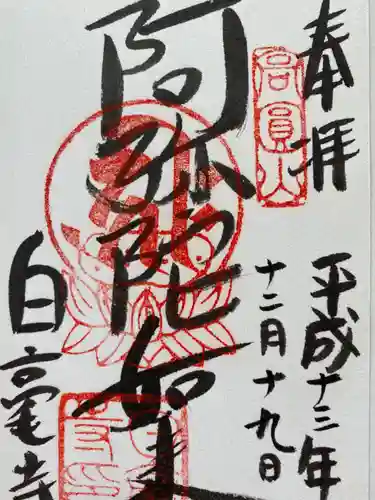 奉拝
高圓山
平成十三年
十二月十九日
阿弥陀如来
白毫寺